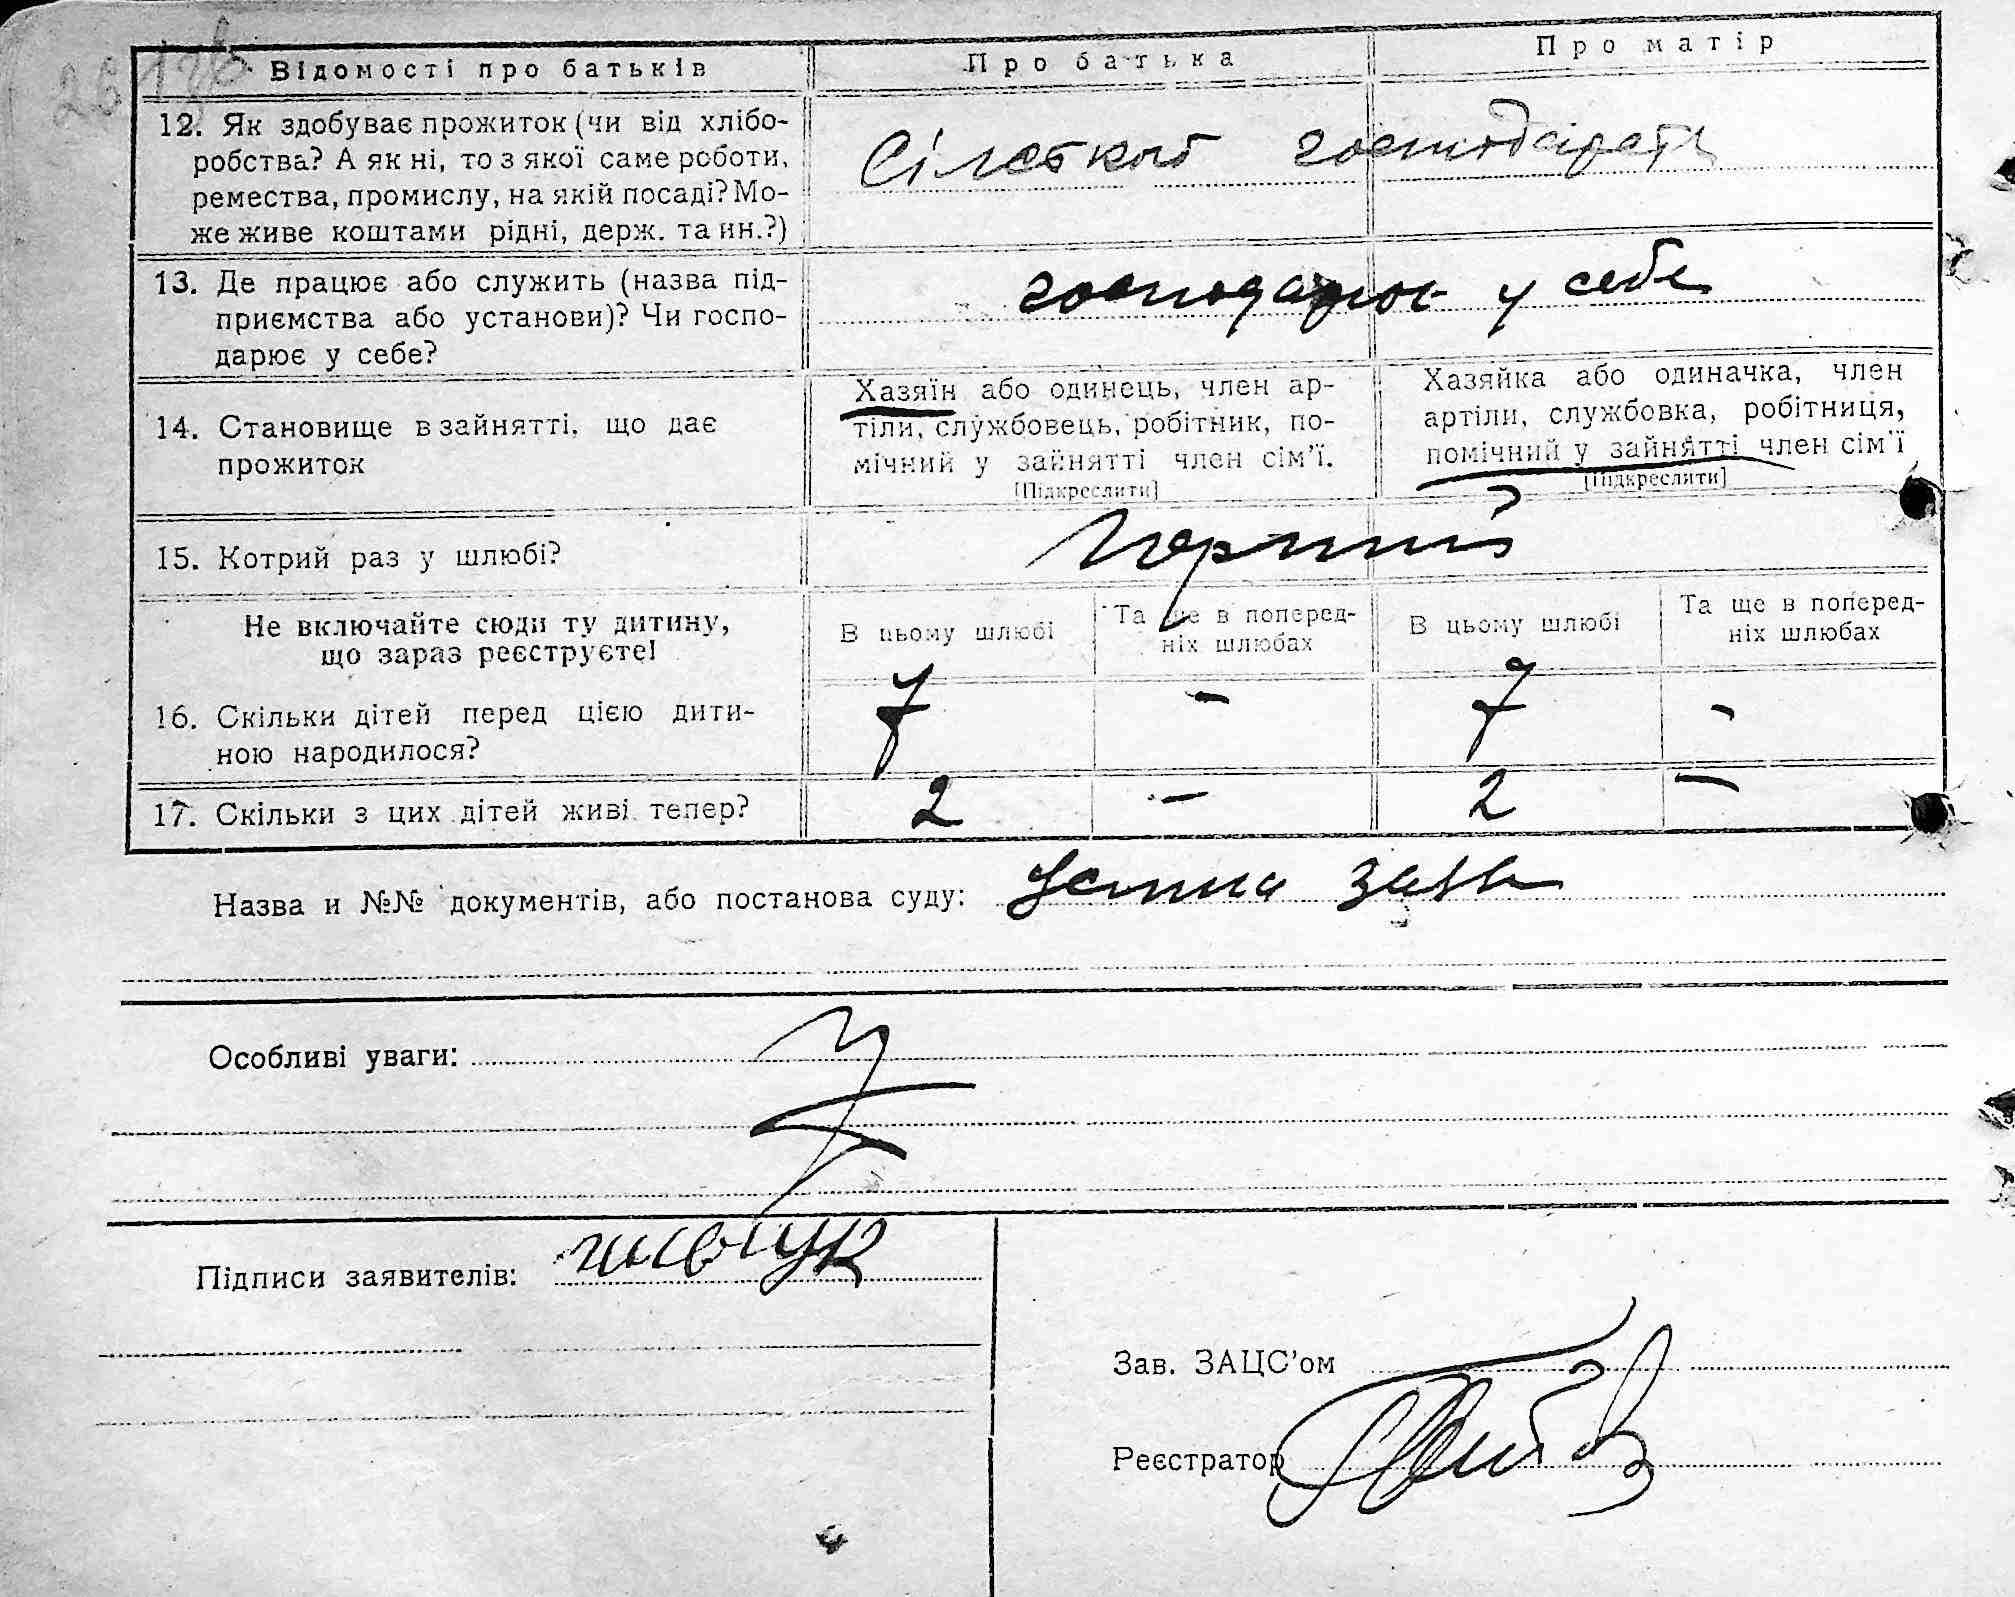 Відомості про батьків
Про батька
Про матір
12. Як здобуває прожиток (чи від хлібо-
робства? А як ні, то з якої саме роботи,
ремества, промислу, на якій посаді? Мо-
же живе коштами рідні, держ. та ин.?)
13. Де працює або служить (назва під-
приємства або установи)? Чи госпо-
дарює у себе?
у себе
14. Становище в зайнятті, що дає
прожиток
Хазяїн або одинець, член ар-
тіли, службовець, робітник, по-
мічний у зайнятті член сім'ї.
[Підкреслити]
Хазяйка або одиначка, член
артіли, службовка, робітниця,
помічний у зайнятті член сім'ї
[Підкреслити]
15. Котрий раз у шлюбі?
Перший
Не включайте сюди ту дитину,
що зараз реєструєте!
В цьому шлюбі
Та ще в поперед-
ніх шлюбах
В цьому шлюбі
Та ще в поперед-
ніх шлюбах
16. Скільки дітей перед цією дити-
ною народилося?
7 - 7 -
17. Скільки з цих дітей живі тепер?
2 - 2 -
Назва и №№ документів, або постанова суду: Устна заява
Особливі уваги:
Підписи заявителів:
Зав. ЗАЦС'ом
Реєстратор